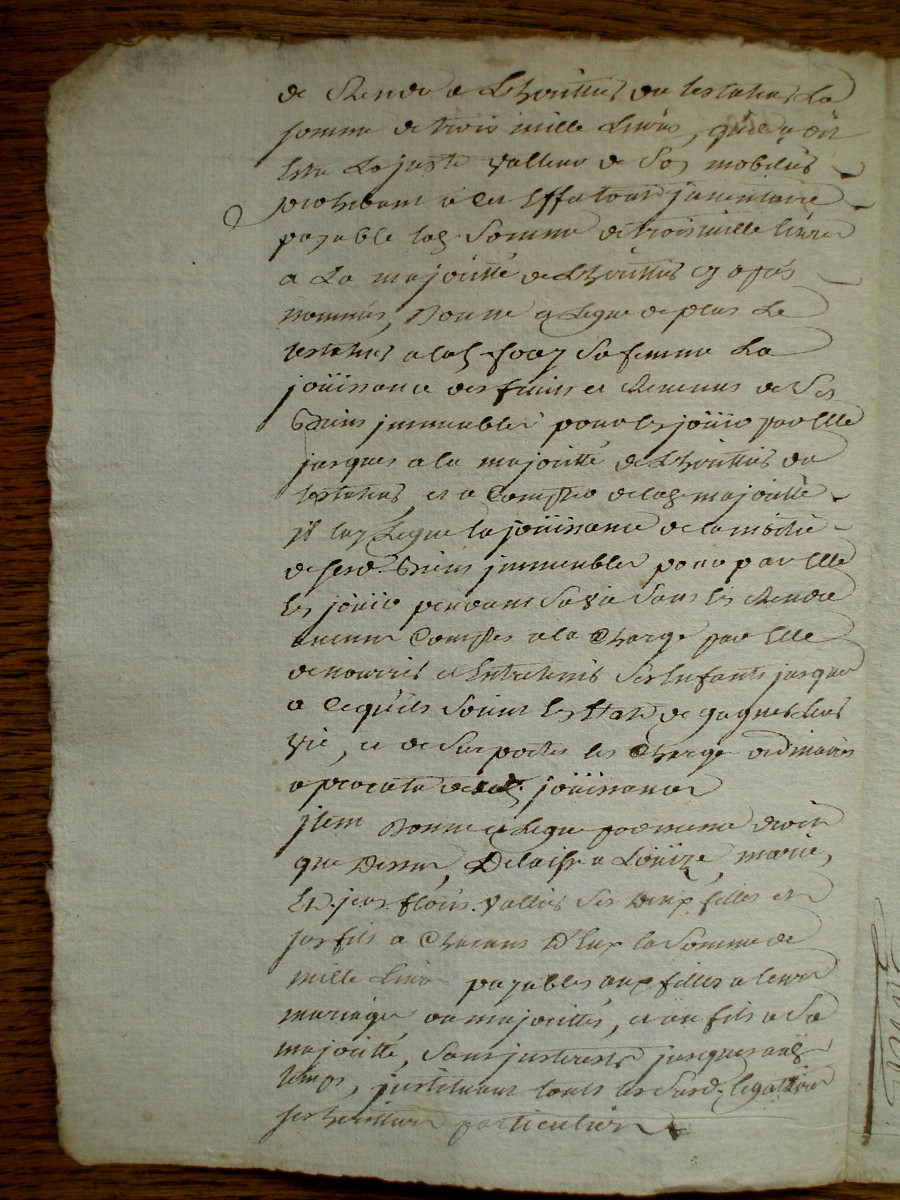 de Rendre a L'heritier du testateur La
somme de trois mille Livres, quil a dit
Estre La juste valleur de Son mobilier
prohibant a cet Effet tout jnventaire
payable lad. Somme de trois mille livres
a La majoritté de L'herittier cy apres
nommé, Donne et Legue de plus Le
testateur a lad. foay Sa femme La
joüissance des fruits et Revenus de Ses
Biens jmmeubles pour les joüir par Elle
jusques a la majoritté de L'herittier du
testateur, et a Compter de lad. majoritté
jl luy Legue la joüissance de la moitié
de sesd. Biens jmmeubles pour par Elle
les joüir pendant Sa vie Sans les Rendre
aucuns Comptes a la Charge par Elle
de nourrir et Entretenir Ses Enfants jusques
a ce qu'ils Soient En Etat de gagner leur
vie, et de Suporter les Charges ordinaires
a proratta de lad. joüissance
jtem Donne et Legue par meme droit
que Dessus, Delaisse a Loüize, marie,
Et vallier Ses Deux filles et
fils a Chacuns D'Eux la Somme de
mille Livres payables aux filles a leurs
mariages ou majorittés, et au fils a Sa
majoritté, Sans jnterests jusques aud.
temps, jnstituant touts les Susd. legattaires
ses heritiers particuliers